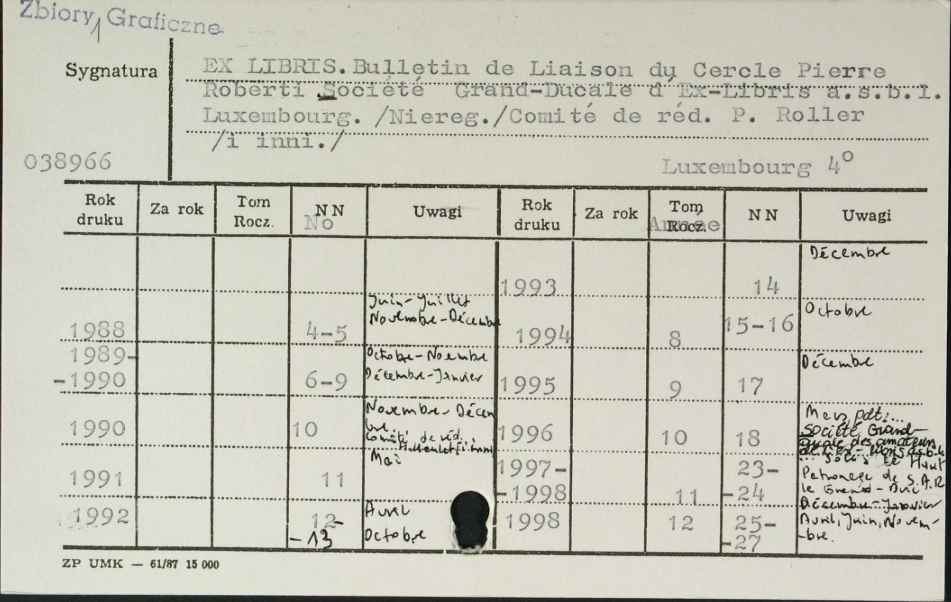 Zbiory Graficzne
Sygnatura
EX LIBRIS. Bulletin de Liaison du Cercle Pierre
Roberti Société Grand-Ducale d'Ex-Libris a.s.b.l.
Luxembourg. /Niereg./Comité de réd. P. Roller
/i inni./
038966
Luxembourg 4°
Rok druku Za rok Tom Rocz. NN No Uwagi Rok druku Za rok Tom Rocz. NN Uwagi
1993 14 Décembre
1988 4-5 Juin-Juillet Novembre-Décembre
1994 8 15-16 Octobre
1989-
-1990 6-9 Octobre-Novembre Décembre-Janvier
1995 9 17 Décembre
1990 10 Novembre-Décembre Comité de réd.
1996 10 18 Société Grand-
1991 11 Mai
1997-
-1998 11 23-
-24 Patronage de S.A.R le Grand-Duc Décembre-Janvier
1992 12-
-13 Avril Octobre
1998 12 25-
-27 Avril, Juin, Novem-
-bre.
ZP UMK — 61/87 15 000